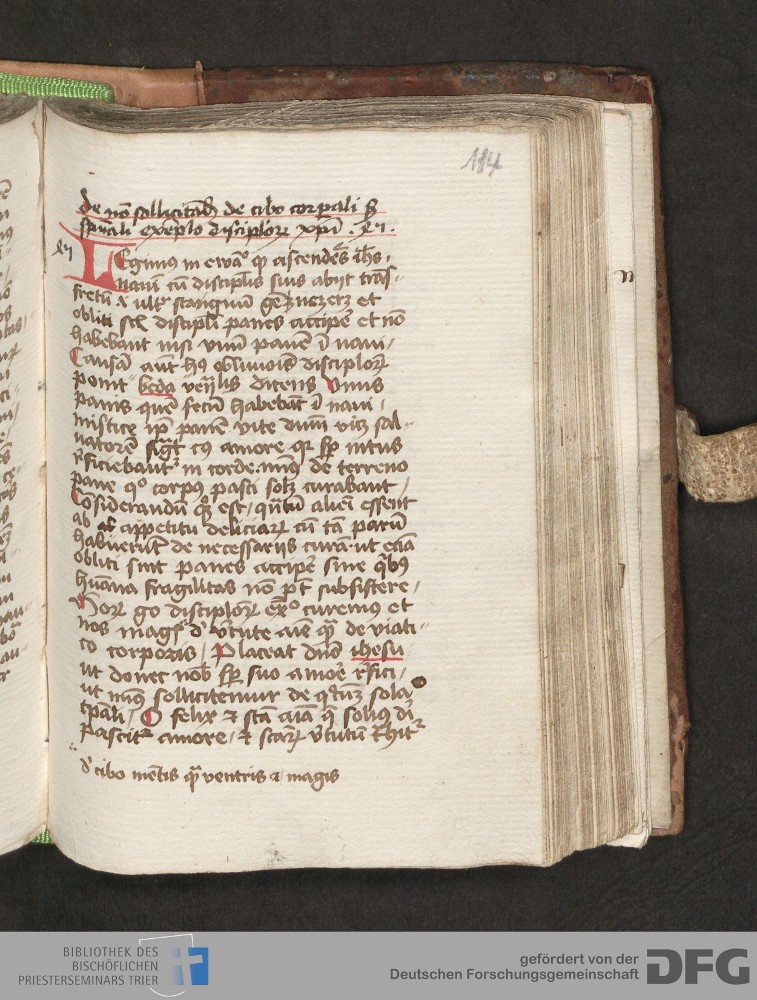 114
de nō sollicitādo de cibo corpali sed
spūali exēplo discipłorꝝ xpī . lxi .
lxi
LEgimus in ewāᵒ qꝫ ascendēs ih̄s
nauī cū discipłis suis abijt trās
fretū ł vltᵃ stangnū geneʒereʒ et
obliti sūt discipłi panes accipe͛ et nō
habebant nisi vnū panē ī naui /
Causā aūt hꝰ obliuiōis discipłorꝝ
ponit beda ven̄lis dicens Vnus
panis quē secū habebāt ī naui /
mistice ip̄m panē vite dnm̄ vꝫ sal-
uatorē sigᵗ cꝰ amore qꝛ sꝑ intus
r̄ficiebantᵘʳ in corde . minꝰ de terreno
pane qᵒ corpꝰ pasci solꝫ curabant /
Cōsiderandū qꝫ est / qᵃntū alieī essent
ab appetitu deliciarꝝ cū tā parū
habuerūt de necessarijs curā . ut eciā
obliti sint panes accipe͛ sine qᵇꝰ
hūana fragilitas nō pᵗ subsistere /
Horꝝ gͦ discipłorꝝ exᵒ curemꝰ et
nos magꝭ d' v͛tute aīe qᵃꝫ de viati-
co corporis / Placeat dnō ihesu
ut donec nob̄ sꝑ suo amoē r̄fici /
ut minꝰ sollicitemur de
tꝑali / O felix ⁊ scā aīa q̄ solius dī
pascitᵘʳ amore / ⁊ scārꝝ v͛tutū
d' cibo mētis qᵃꝫ ventris ⁊ magis
BIBLIOTHEK DES
BISCHÖFLICHEN
PRIESTERSEMINARS TRIER
gefördert von der
Deutschen Forschungsgemeinschaft
DFG